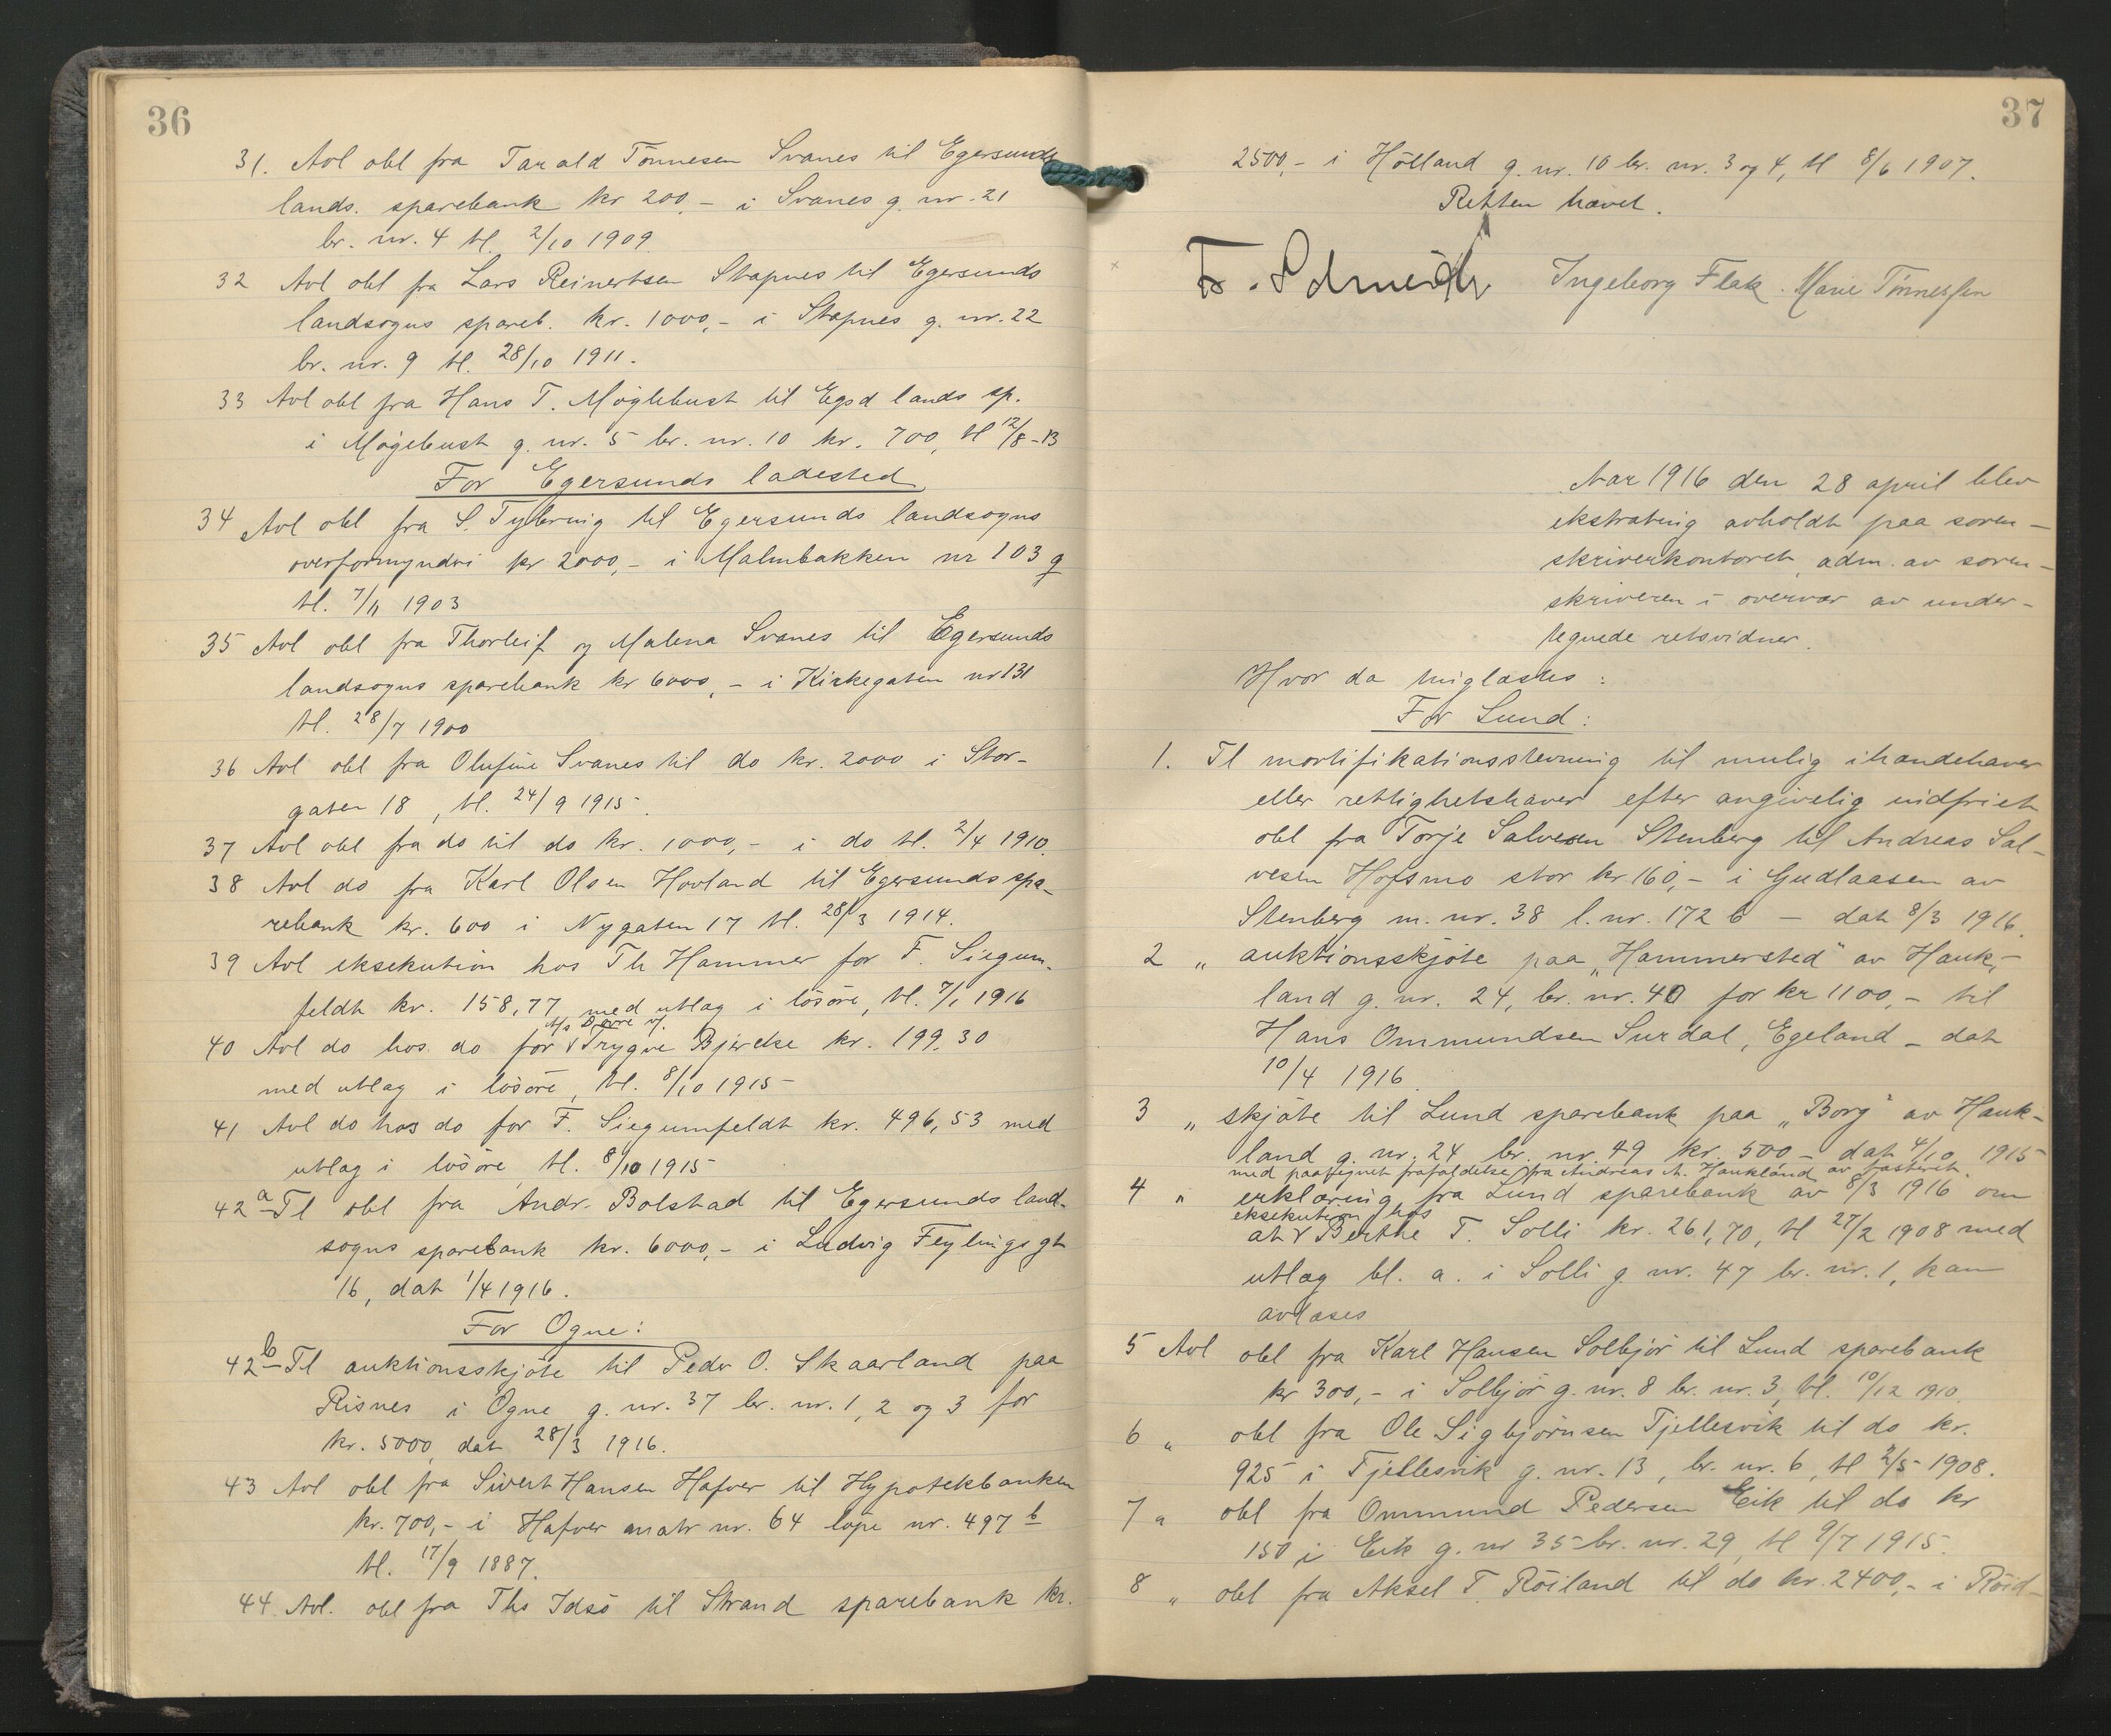 36
31. Avl obl fra Tarald Tönnesen Svanes til Egersunds
lands. sparebank kr 200,- i Svanes g. nr. 21
br. nr. 4 tl. 2/10 1909.
32 Avl obl fra Lars Reinertsen Stapnes til Egersunds
landsogns spareb. kr. 1000,- i Stapnes g. nr. 22
br. nr. 9 tl. 28/10 1911.
33 Avl obl fra Hans T. Møglebust til Egsd lands sp.
i Mögebust g. nr. 5 br. nr. 10 kr. 700, tl 12/8-13
For Egersunds ladested
34 Avl obl fra S. Tybring til Egersunds landsogns
overformynderi kr 2000,- i Malmbakken nr 103 g
tl. 7/11 1903
35 Avl obl fra Thorleif og Malena Svanes til Egersunds
landsogns sparebank kr 6000,- i Kirkegaten nr 131
tl. 28/7 1900
36 Avl obl fra Olufine Svanes til do kr. 2000 i Stor-
gaten 18, tl. 24/9 1915.
37 Avl obl fra do til do kr. 1000,- i do tl. 2/4 1910.
38 Avl do fra Karl Olsen Hovland til Egersunds spa-
rebank kr. 600 i Nygaten 17 tl. 28/3 1914.
39 Avl eksekution hos Th Hammer for F. Siegum-
feldt kr. 158,77 med utlag i lösöre, tl. 7/1 1916
40 Avl do hos do for Trygve Bjercke kr. 199.30
med utlag i lösöre, tl. 8/10 1915
41 Avl do hos do for F. Siegumfeldt kr. 496,53 med
utlag i lösöre tl. 8/10 1915
42 a Tl obl fra Andr. Bolstad til Egersunds land-
sogns sparebank kr. 6000,- i Ludvig Feylings gt
16, dat 1/4 1916.
For Ogne:
42 b Tl auktionsskjöte til Peder O. Skaarland paa
Risnes i Ogne g. nr. 37 br. nr. 1, 2 og 3 for
kr. 5000, dat 28/3 1916.
43 Avl obl fra Sivert Hansen Hafver til Hypotekbanken
kr. 700,- i Hafver matr nr. 64 löpe nr. 497 b
tl. 17/9 1887.
44. Avl. obl fra Ths Idsö til Strand sparebank kr.
37
2500,- i Hölland g. nr. 10 br. nr. 3 og 4, tl 8/6 1907.
Retten hævet.
Ingeborg Flak. Marie Tönnessen
Aar 1916 den 28 april blev
ekstrating avholdt paa soren-
skriverkontoret, adm. av soren-
skriveren i overvær av under-
tegnede retsvidner.
Hvor da tinglæstes:
For Lund:
1. Tl mortifikationsstevning til mulig ihændehaver
eller rettighetshaver efter angivelig indfriet
obl fra Torje Salvesen Stenberg til Andreas Sal-
vesen Hofsmo stor kr 160,- i Gudlaasen av
Stenberg m. nr. 38 l. nr. 172 b - dat 8/3 1916.
2 " auktionsskjöte paa "Hammersted" av Hauk-
land g. nr. 24, br. nr. 40 for kr 1100,- til
Hans Ommundsen Surdal, Egeland - dat
10/4 1916.
3 " skjöte til Lund sparebank paa "Borg" av Hauk-
land g. nr. 24 br. nr. 49 kr. 500 - dat 4/10 1915
med paategnet frafaldelse fra Andreas A. Haukland av
4 " erklæring fra Lund sparebank av 8/3 1916 om
eksekution hos
at Berthe T. Solli kr. 261,70, tl 27/2 1908 med
utlæg bl. a. i Solli g nr. 47 br. nr. 1, kan
avlæses
5 Avl obl fra Karl Hansen Solbjör til Lund sparebank
kr 300,- i Solbjör g. nr. 8 br. nr. 3, tl. 10/12 1910.
6 " obl fra Ole Sigbjörnsen Tjellesvik til do kr.
925 i Tjellesvik g. nr. 13, br. nr. 6, tl 2/5 1908.
7 " obl fra Ommund Pedersen Eik til do kr
150 i Eik g. nr 35 br. nr. 29, tl 9/7 1915.
8 " obl fra Aksel T. Röiland til do kr. 2400,- i Röid-